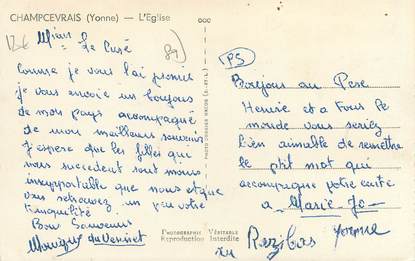 CHAMPCEVRAIS (Yonne) — L'Eglise
12€
89)
Mr le Curé
Comme je vous l'ai promis
je vous envoie un bonjour
de mon pays accompagné
de mon meilleur souvenir
J'espère que les filles qui
nous succedent sont moins
insupportable que nous et que
vous retrouvez un peu votre
tranquilité
Bon Souvenir
Monique
PHOTOGRAPHIE VÉRITABLE
Reproduction Interdite
PS
Bonjour au Pere
Hervié et a tous le
monde vous seriez
bien aimable de remettre
le ptit mot qui
accompagne votre carte
a Marie Jo
Yonne